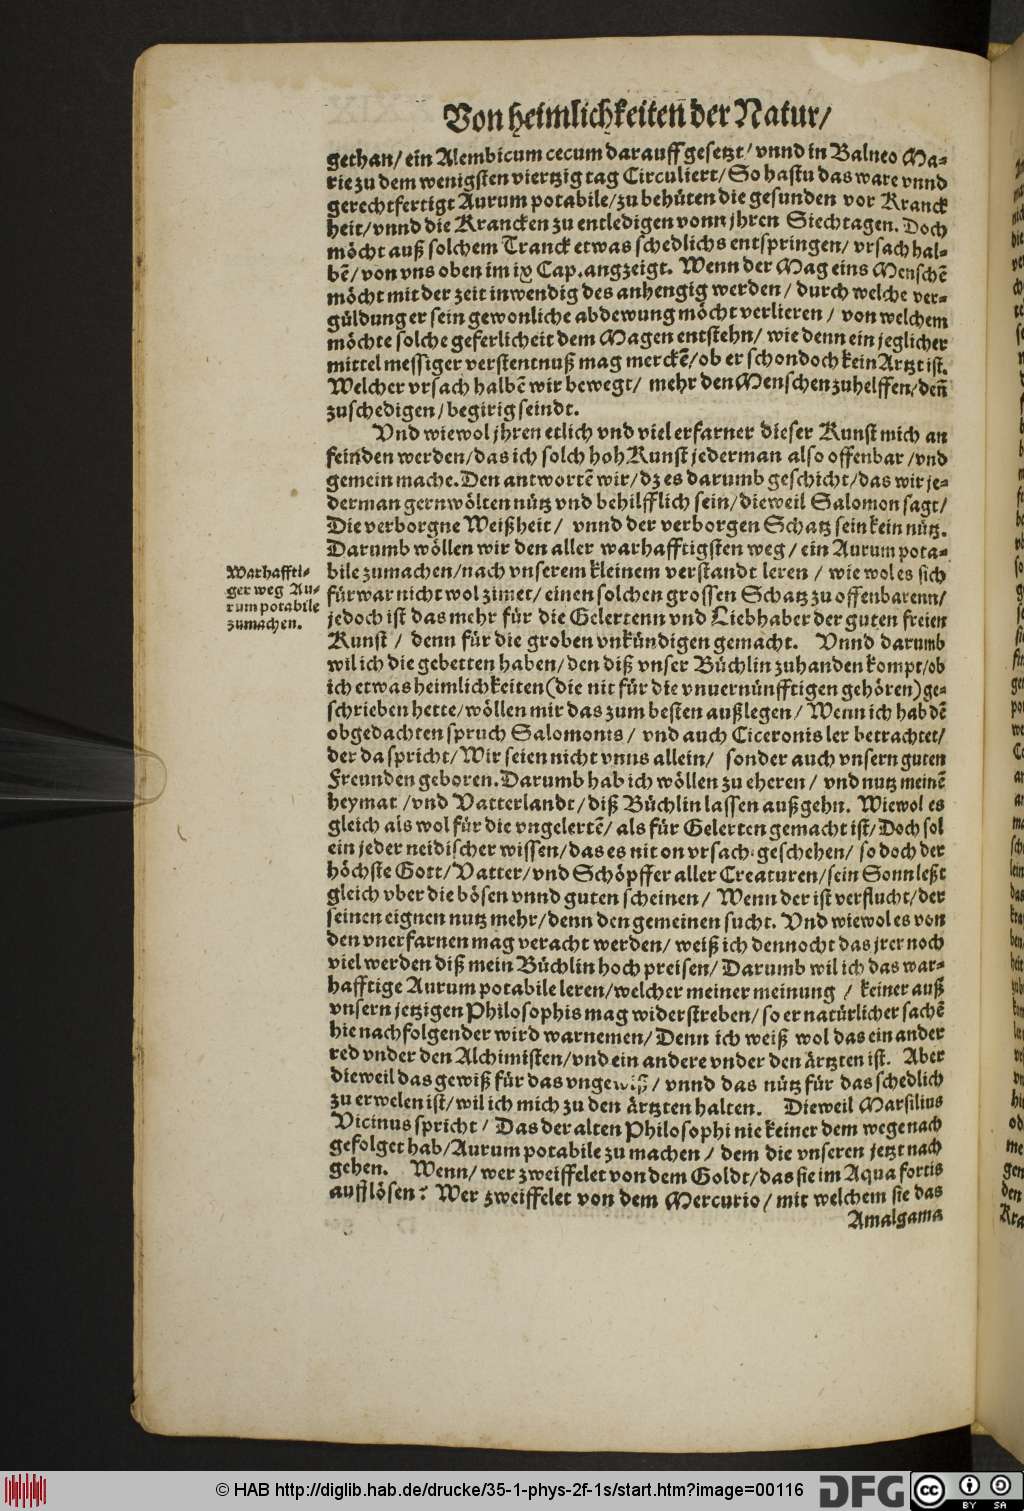 Von heimlichkeiten der Natur/
gethan/ ein Alembicum cecum darauff gesetzt/ vnnd in Balneo Ma-
rie zu dem wenigsten viertzig tag Circuliert/ So hastu das ware vnnd
gerechtfertigt Aurum potabile/ zu behüten die gesunden vor Kranck
heit/ vnnd die Krancken zu entledigen vonn jhren Siechtagen. Doch
möcht auß solchem Tranck etwas schedlichs entspringen/ vrsach hal-
bẽ/ von vns oben im ix Cap. angzeigt. Wenn der Mag eins Menschẽ
möcht mit der zeit inwendig des anhengig werden/ durch welche ver-
güldung er sein gewonliche abdewung möcht verlieren/ von welchem
möchte solche geferlicheit dem Magen entstehn/ wie denn ein jeglicher
mittelmessiger verstentnuß mag merckẽ/ ob er schon doch kein Artzt ist.
Welcher vrsach halbẽ wir bewegt/ mehr den Menschen zuhelffen/ deñ
zuschedigen/ begirig seindt.
Vnd wiewol jhren etlich vnd viel erfarner dieser Kunst mich an
feinden werden/ das ich solch hoh Kunst jederman also offenbar/ vnd
gemein mache. Den antwortẽ wir/ dz es darumb geschicht/ das wir je-
derman gern wölten nütz vnd behilfflich sein/ dieweil Salomon sagt/
Die verborgne Weißheit/ vnnd der verborgen Schatz sein kein nütz.
Darumb wöllen wir den aller warhafftigsten weg/ ein Aurum pota-
bile zumachen/ nach vnserem kleinem verstandt leren/ wie wol es sich
fürwar nicht wol zimet/ einen solchen grossen Schatz zu offenbarenn/
jedoch ist das mehr für die Gelertenn vnd Liebhaber der guten freien
Kunst/ denn für die groben vnkündigen gemacht. Vnnd darumb
wil ich die gebetten haben/ den diß vnser Büchlin zuhanden kompt/ ob
ich etwas heimlichkeiten (die nit für die vnuernünfftigen gehören) ge-
schrieben hette/ wöllen mir das zum besten außlegen/ Wenn ich hab dẽ
obgedachten spruch Salomonis/ vnd auch Ciceronis ler betrachtet/
der da spricht/ Wir seien nicht vnns allein/ sonder auch vnsern guten
Freunden geboren. Darumb hab ich wöllen zu eheren/ vnd nutz meinẽ
heymat/ vnd Vatterlandt/ diß Büchlin lassen außgehn. Wiewol es
gleich als wol für die vngelertẽ/ als für Gelerten gemacht ist/ Doch sol
ein jeder neidischer wissen/ das es nit on vrsach geschehen/ so doch der
höchste Gott/ Vatter/ vnd Schöpffer aller Creaturen/ sein Sonn leßt
gleich vber die bösen vnnd guten scheinen/ Wenn der ist verflucht/ der
seinen eignen nutz mehr/ denn den gemeinen sucht. Vnd wiewol es von
den vnerfarnen mag veracht werden/ weiß ich dennocht das jrer noch
viel werden diß mein Büchlin hoch preisen/ Darumb wil ich das war-
hafftige Aurum potabile leren/ welcher meiner meinung/ keiner auß
vnsern jetzigen Philosophis mag widerstreben/ so er natürlicher sachẽ
hie nachfolgender wird warnemen/ Denn ich weiß wol das ein ander
red vnder den Alchimisten/ vnd ein andere vnder den ärtzten ist. Aber
dieweil das gewiß für das vngewiß/ vnnd das nütz für das schedlich
zu erwelen ist/ wil ich mich zu den ärtzten halten. Dieweil Marsilius
Vicinus spricht/ Das der alten Philosophi nie keiner dem wege nach
gefolget hab/ Aurum potabile zu machen/ dem die vnseren jetzt nach
gehen. Wenn/ wer zweiffelet von dem Goldt/ das sie im Aqua fortis
aufflösen? Wer zweiffelet von dem Mercurio/ mit welchem sie das
Amalgama
Warhaffti-
ger weg Au-
rum potabile
zumachen.
© HAB http://diglib.hab.de/drucke/35-1-phys-2f-1s/start.htm?image=00116
DFG
cc BY SA